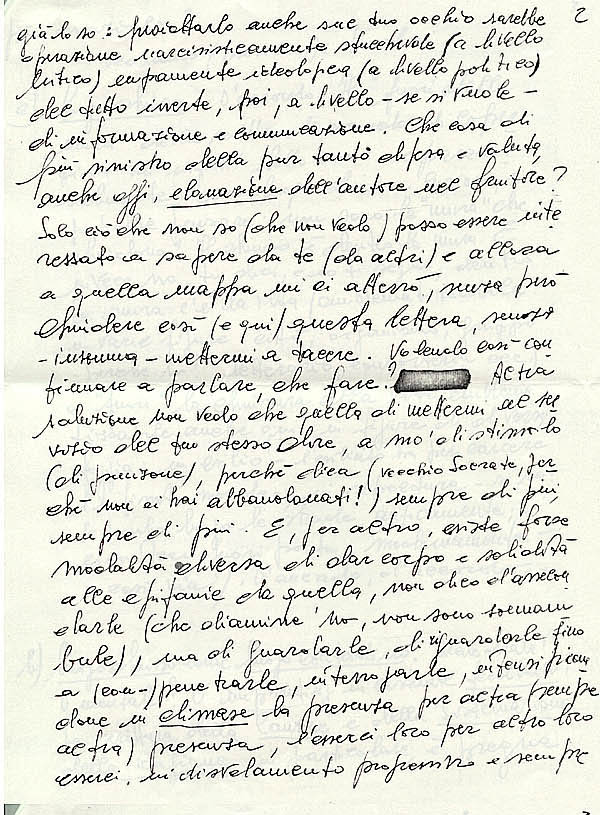 2
già lo so: proiettarlo anche sul tuo occhio sarebbe
operazione narcisisticamente stucchevole (a livello
critico) e puramente ideologica (a livello politico)
del tutto inerte, poi, a livello – se si vuole –
di informazione e comunicazione. Che cosa di
più sinistro della pur tanto difesa e valuta
anche oggi, elonazione dell'autore nel fruitore?
Solo ciò che non so (che non vedo) posso essere inte
ressato a sapere da te (da altri) e allora
a quella mappa mi ci atterrò, senza però
chiudere così (e qui) questa lettera, senza
– insomma – mettermi a tacere. Volendo così con
tinuare a parlare, che fare? Altra
soluzione non vedo che quella di mettermi al ser
vizio del tuo stesso dire, a mo' di stimolo
(di frizione), perché dica (vecchio Socrate, per
ché non ci hai abbandonati!) sempre di più,
sempre di più. E, per altro, esiste forse
modalità diversa di dar corpo e solidità
alle epifanie da quella, non dico d'assecon
darle (che diamine no, non sono sonnam
bule), ma di guardarle, di riguardarle fino
a (com-)penetrarle, interrogarle, intensifican
done in climax la presenza per altra (sempre
altra) presenza, l'esserci loro per altro loro
esserci, in disvelamento progressivo e sempre